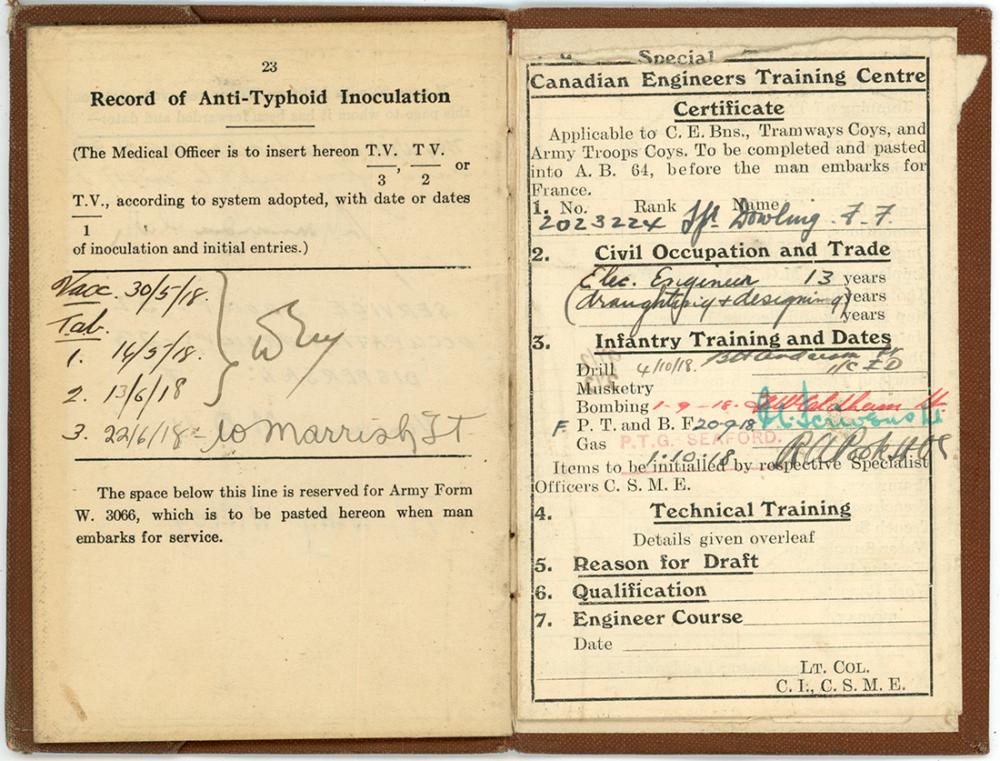 23
Record of Anti-Typhoid Inoculation
(The Medical Officer is to insert hereon T.V./3, T V./2 or
T.V./1, according to system adopted, with date or dates
of inoculation and initial entries.)
Vacc. 30/5/18.
Tab.
1. 14/5/18.
2. 13/6/18
3. 22/6/18 - Marrish Lt
The space below this line is reserved for Army Form
W. 3066, which is to be pasted hereon when man
embarks for service.
Special
Canadian Engineers Training Centre
Certificate
Applicable to C. E. Bns., Tramways Coys, and
Army Troops Coys. To be completed and pasted
into A. B. 64, before the man embarks for
France.
1. No. Rank Name
2023224 Spr Dowling. F. F.
2. Civil Occupation and Trade
Elec. Engineer 13 years
(draughting & designing) years
years
3. Infantry Training and Dates
Drill 4/10/18.
Musketry
Bombing 1-9-18.
F P. T. and B. F 20-9-18
Gas P.T.G. SEAFORD.
1.10.18
Items to be initialled by respective Specialist
Officers C. S. M. E.
4. Technical Training
Details given overleaf
5. Reason for Draft
6. Qualification
7. Engineer Course
Date
LT. COL.
C. I., C. S. M. E.